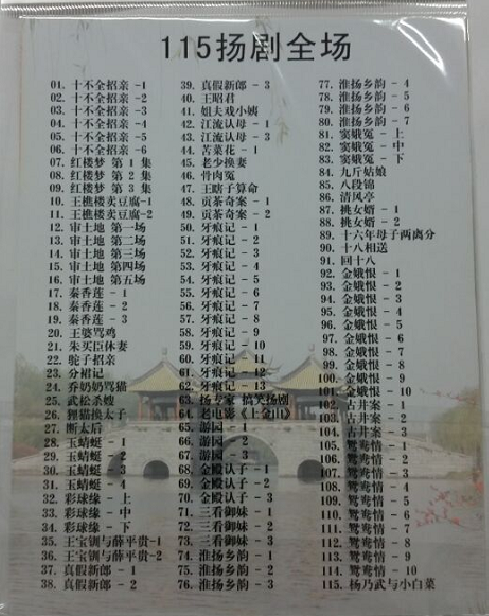 115扬剧全场
01. 十不全招亲 -1
02. 十不全招亲 -2
03. 十不全招亲 -3
04. 十不全招亲 -4
05. 十不全招亲 -5
06. 十不全招亲 -6
07. 红楼梦 第 1 集
08. 红楼梦 第 2 集
09. 红楼梦 第 3 集
10. 王樵楼卖豆腐-1
11. 王樵楼卖豆腐-2
12. 审土地 第一场
13. 审土地 第二场
14. 审土地 第三场
15. 审土地 第四场
16. 审土地 第五场
17. 秦香莲 - 1
18. 秦香莲 - 2
19. 秦香莲 - 3
20. 王婆骂鸡
21. 朱买臣休妻
22. 鸵子招亲
23. 分裙记
24. 乔奶奶骂猫
25. 武松杀嫂
26. 狸猫换太子
27. 断太后
28. 玉蜻蜓 - 1
29. 玉蜻蜓 - 2
30. 玉蜻蜓 - 3
31. 玉蜻蜓 - 4
32. 彩球缘 - 上
33. 彩球缘 - 中
34. 彩球缘 - 下
35. 王宝钏与薛平贵-1
36. 王宝钏与薛平贵-2
37. 真假新郎 - 1
38. 真假新郎 - 2
39. 真假新郎 - 3
40. 王昭君
41. 姐夫戏小姨
42. 江流认母 - 1
43. 江流认母 - 3
44. 苦菜花 - 1
45. 老少换妻
46. 骨肉冤
47. 王瞎子算命
48. 贡茶奇案 - 1
49. 贡茶奇案 - 2
50. 牙痕记 - 1
51. 牙痕记 - 2
52. 牙痕记 - 3
53. 牙痕记 - 4
54. 牙痕记 - 5
55. 牙痕记 - 6
56. 牙痕记 - 7
57. 牙痕记 - 8
58. 牙痕记 - 9
59. 牙痕记 - 10
60. 牙痕记 - 11
61. 牙痕记 - 12
62. 牙痕记 - 13
63. 扬专家 搞笑扬剧
64. 老电影《上金山》
65. 游园 - 1
66. 游园 - 2
67. 游园 - 3
68. 金殿认子 - 1
69. 金殿认子 - 2
70. 金殿认子 - 3
71. 三看御妹 - 1
72. 三看御妹 - 2
73. 三看御妹 - 3
74. 淮扬乡韵 - 1
75. 淮扬乡韵 - 2
76. 淮扬乡韵 - 3
77. 淮扬乡韵 - 4
78. 淮扬乡韵 - 5
79. 淮扬乡韵 - 6
80. 淮扬乡韵 - 7
81. 窦娥冤 - 上
82. 窦娥冤 - 中
83. 窦娥冤 - 下
84. 九斤姑娘
85. 八段锦
86. 清风亭
87. 挑女婿 - 1
88. 挑女婿 - 2
89. 十六年母子两离分
90. 十八相送
91. 回十八
92. 金娥恨 - 1
93. 金娥恨 - 2
94. 金娥恨 - 3
95. 金娥恨 - 4
96. 金娥恨 - 5
97. 金娥恨 - 6
98. 金娥恨 - 7
99. 金娥恨 - 8
100. 金娥恨 - 9
101. 金娥恨 - 10
102. 古井案 - 1
103. 古井案 - 2
104. 古井案 - 3
105. 鸳鸯情 - 1
106. 鸳鸯情 - 2
107. 鸳鸯情 - 3
108. 鸳鸯情 - 4
109. 鸳鸯情 - 5
110. 鸳鸯情 - 6
111. 鸳鸯情 - 7
112. 鸳鸯情 - 8
113. 鸳鸯情 - 9
114. 鸳鸯情 - 10
115. 杨乃武与小白菜